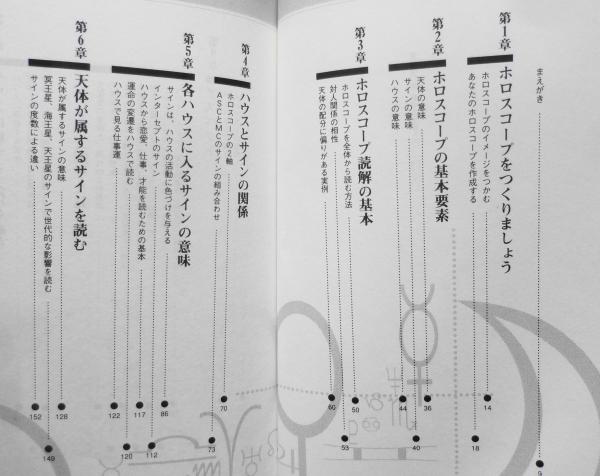 まえがき 9
第1章 ホロスコープをつくりましょう
ホロスコープのイメージをつかむ 14
あなたのホロスコープを作成する 18
第2章 ホロスコープの基本要素
天体の意味 36
サインの意味 40
ハウスの意味 44
第3章 ホロスコープ読解の基本
ホロスコープを全体から読む方法 50
対人関係の相性 53
天体の配分に偏りがある実例 60
第4章 ハウスとサインの関係
ホロスコープの2軸 70
ASCとMCのサインの組み合わせ 73
第5章 各ハウスに入るサインの意味
サインは、ハウスの活動に色づけを与える 86
インターセプトのサイン 112
ハウスから恋愛、仕事、才能を読むための基本 117
運命の変遷をハウスで読む 120
ハウスで見る仕事運 122
第6章 天体が属するサインを読む
天体が属するサインの意味 128
冥王星、海王星、天王星のサインで世代的な影響を読む 149
サインの度数による違い 152